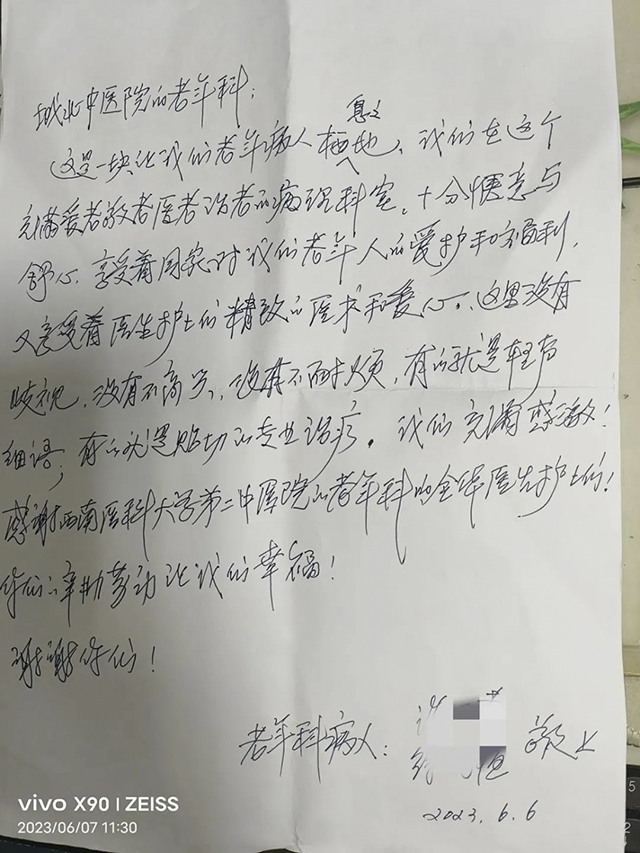 城北中医院的老年科：
息之
这是一块让我们老年病人栖地，我们在这个
充满爱者敬者医者治者的病理科室，十分惬意与
舒心，享受着国家对我们老年人的爱护和福利，
又享受着医生护士们精致的医术和爱心。这里没有
歧视，没有不高兴，也有不耐烦，有的就是轻声
细语；有的就是贴切的专业治疗。我们充满感激！
感谢西南医科大学第二中医院的老年科的全体医生护士们！
你们的辛勤劳动让我们幸福！
谢谢你们！
老年科病人：
敬上
2023.6.6
vivo X90 | ZEISS
2023/06/07 11:30